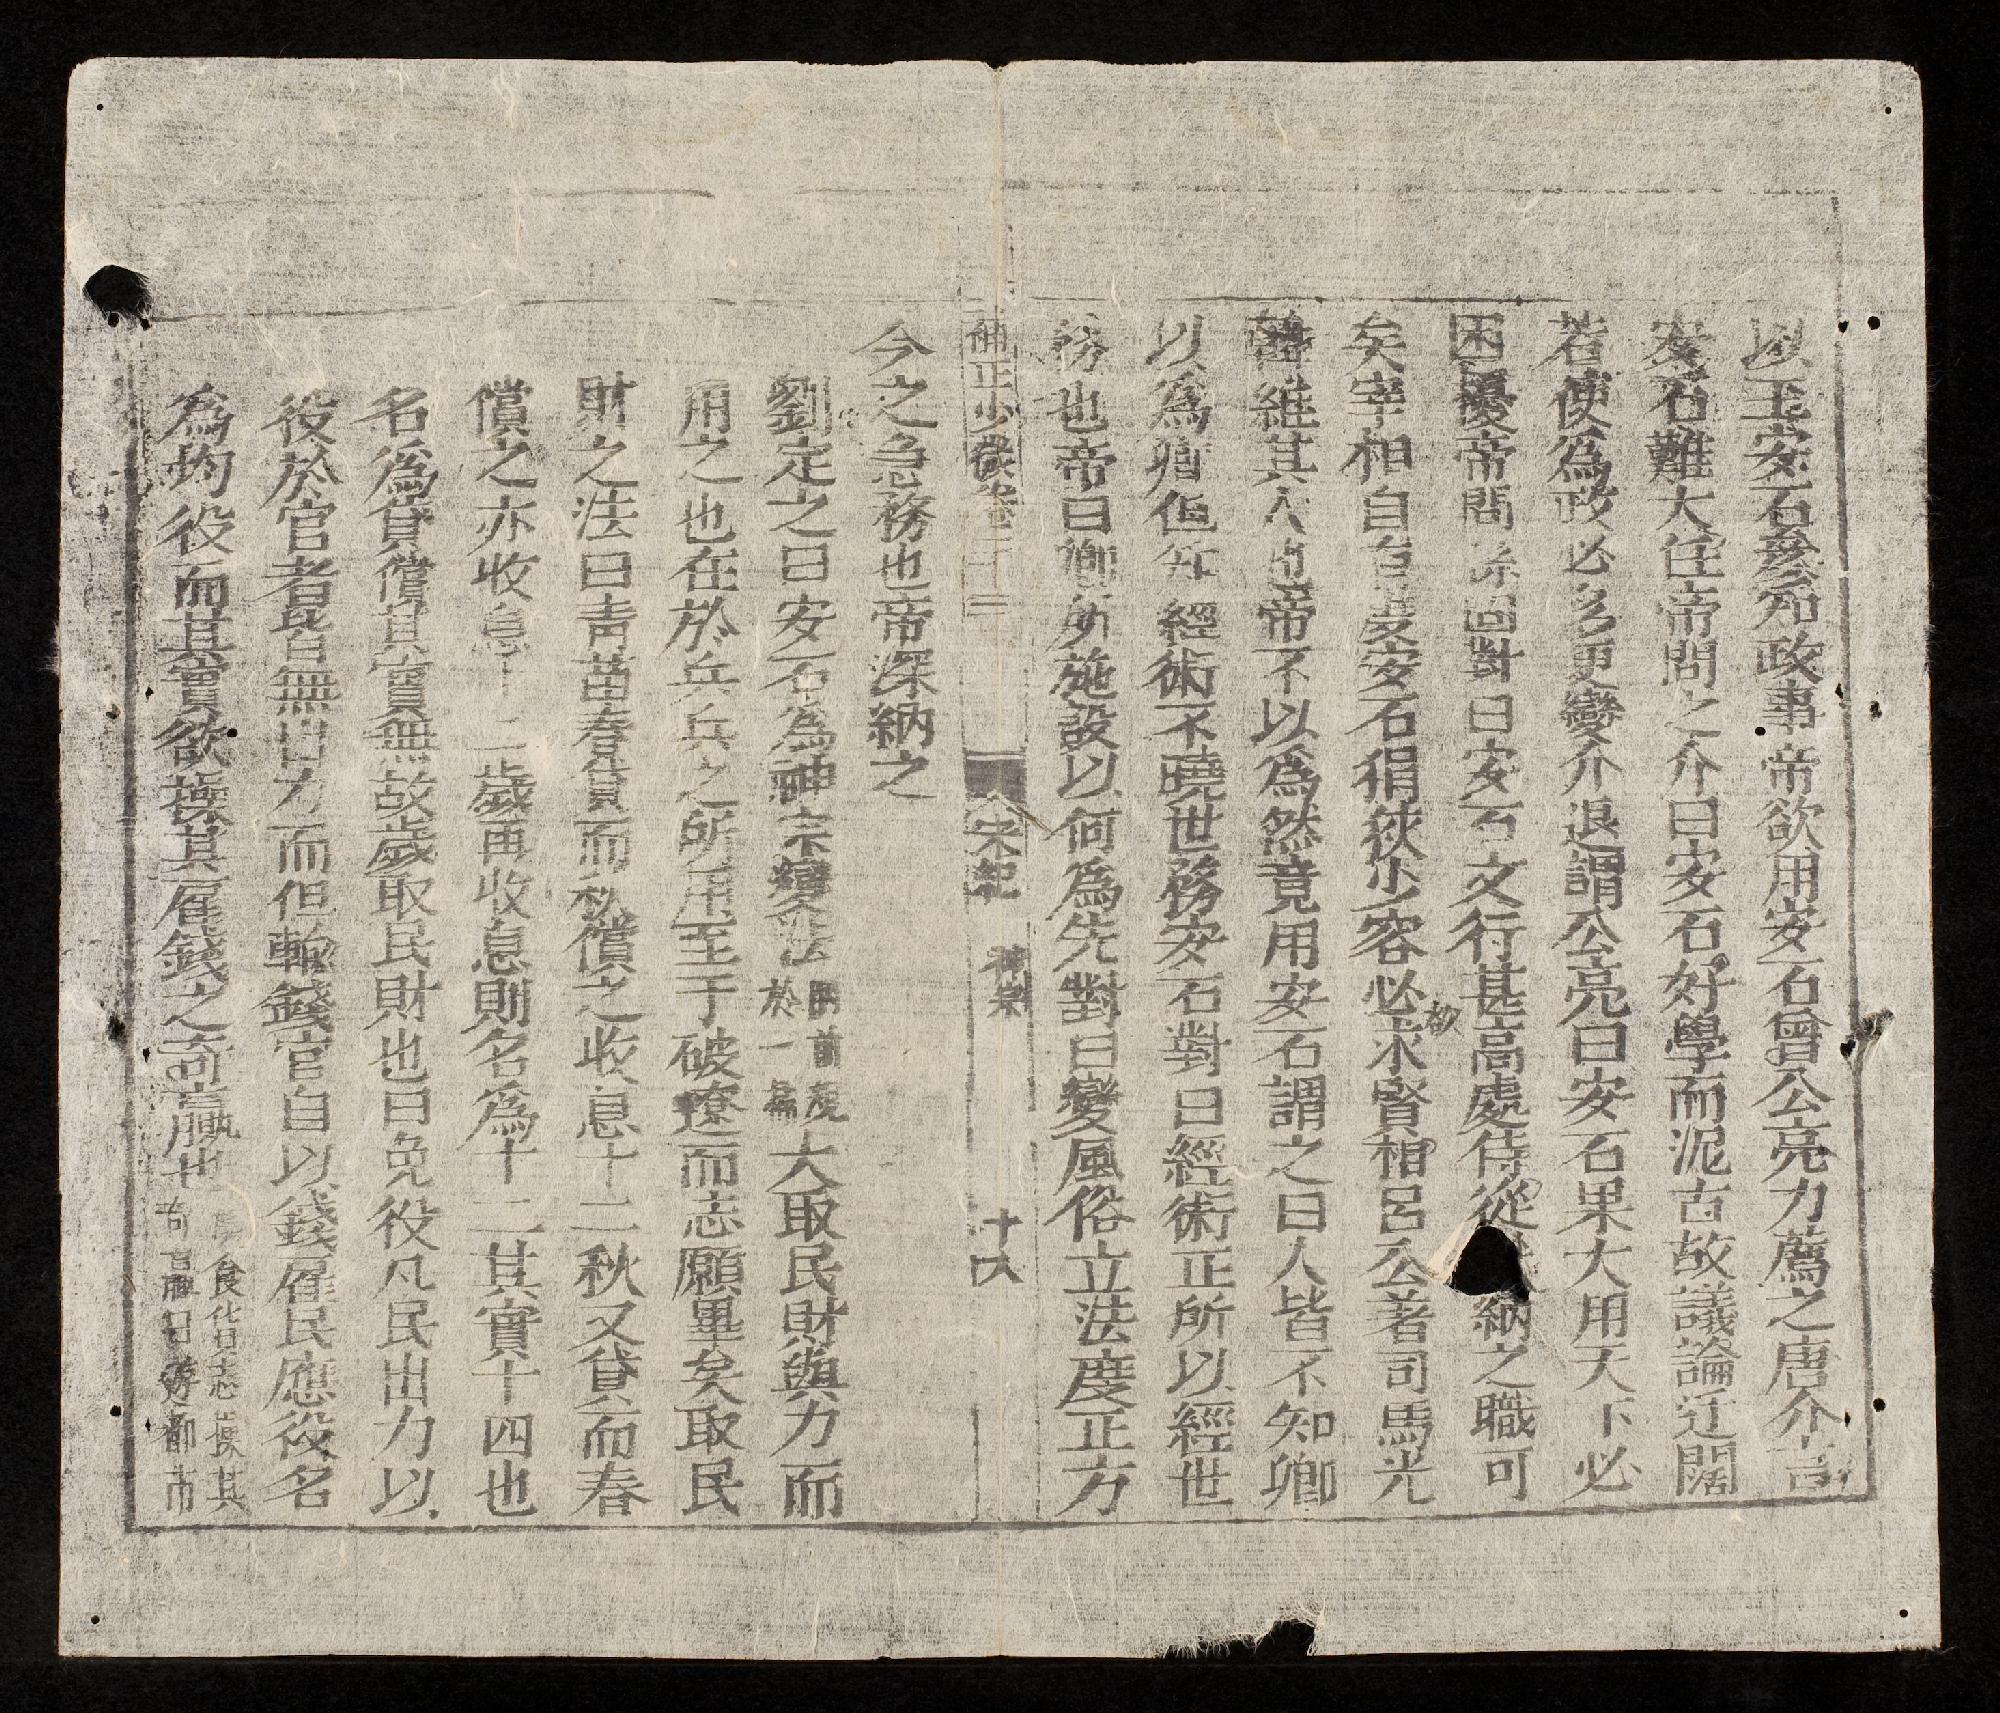 以王安石參知政事帝欲用安石曾公亮力薦之唐介言
安石難大任帝問之介曰安石好學而泥古故議論迂闊
若使為政必多更變介退謂公亮曰安石果大用天下必
困擾帝問孫固對曰安石文行甚高處侍從獻納之職可
矣宰相自有度安石狷狹少容必欲求賢相呂公著司馬光
韓維其人也帝不以為然竟用安石謂之曰人皆不知卿
以為卿但知經術不曉世務安石對曰經術正所以經世
務也帝曰卿所施設以何為先對曰變風俗立法度正方
補正少微卷二十三 宋紀 神宗 十八
今之急務也帝深納之
劉定之曰安石為神宗變法於一編大取民財與力而
用之也在於兵兵之所用至于破遼而志願畢矣取民
財之法曰青苗春貸而秋償之收息十二秋又貸而春
償之亦收息十二歲再收息則名為十二其實十四也
名為貸償其實無故歲取民財也曰免役凡民出力以
役於官者皆無出力而但輸錢官自以錢雇民應役名
為均役而其實欲操其雇錢之奇贏也食化曰志操其奇贏日游都市